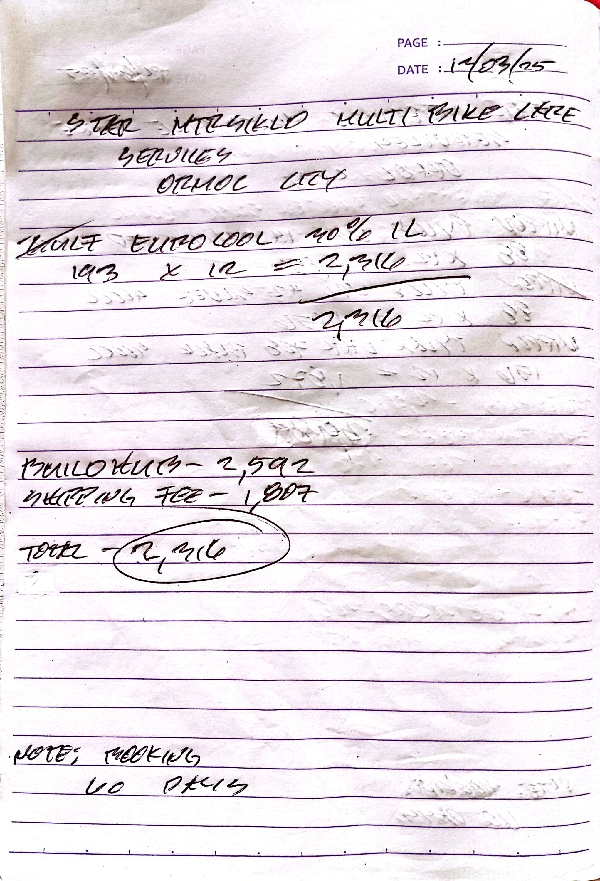 PAGE :
DATE : 12/03/25
STAR MTRSIKLO MULTI BIKE CARE
SERVICES
ORMOC CITY
EUROCOOL 30% 1L
193 X 12 = 2,316
2,316
BUILDHUB - 2,592
SHIPPING FEE - 1,807
TOTAL - 2,316
NOTE; BOOKING
60 DAYS